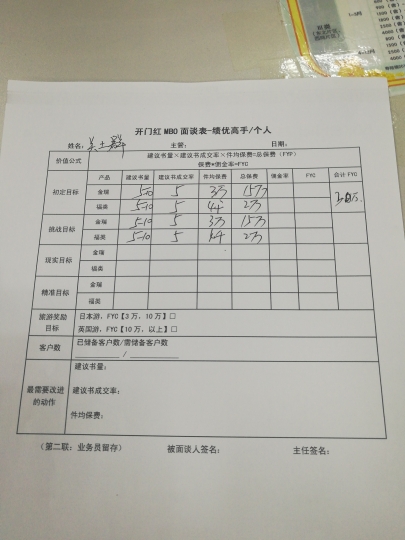 开门红 MBO 面谈表-绩优高手/个人
姓名: 主管: 日期:
价值公式 建议书量×建议书成交率×件均保费=总保费（FYP）
保费*佣金率=FYC
产品 建议书量 建议书成交率 件均保费 总保费 佣金率 FYC 合计 FYC
初定目标 金瑞 5-10 5 3万 15万
福类 5-10 5 2万
挑战目标 金瑞 5-10 5 3万 15万
福类 5-10 5 2万
现实目标 金瑞
福类
精准目标 金瑞
福类
旅游奖励目标 日本游, FYC【3 万, 10 万】□
英国游, FYC【10 万, 以上】□
客户数 已储备客户数/需储备客户数
/
最需要改进的动作 建议书量:
建议书成交率:
件均保费:
（第二联: 业务员留存） 被面谈人签名: 主任签名: